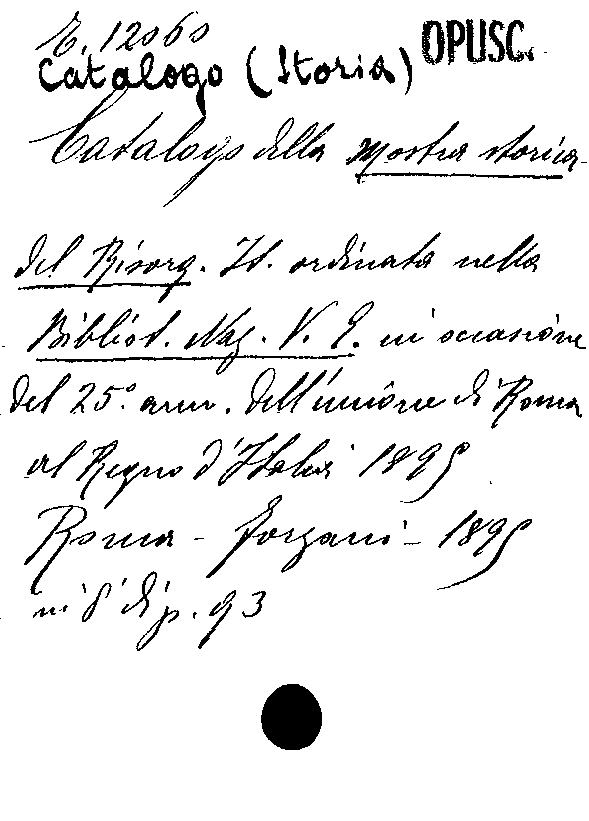 E. 12060
OPUSC.
Catalogo (Storia)
Catalogo della Mostra storica
del Risorg. It. ordinata nella
Bibliot. Naz. V. E. in occasione
del 25° ann. dell'unione di Roma
al Regno d'Italia 1895
Roma - Forzani - 1895
in 8° di p. 93